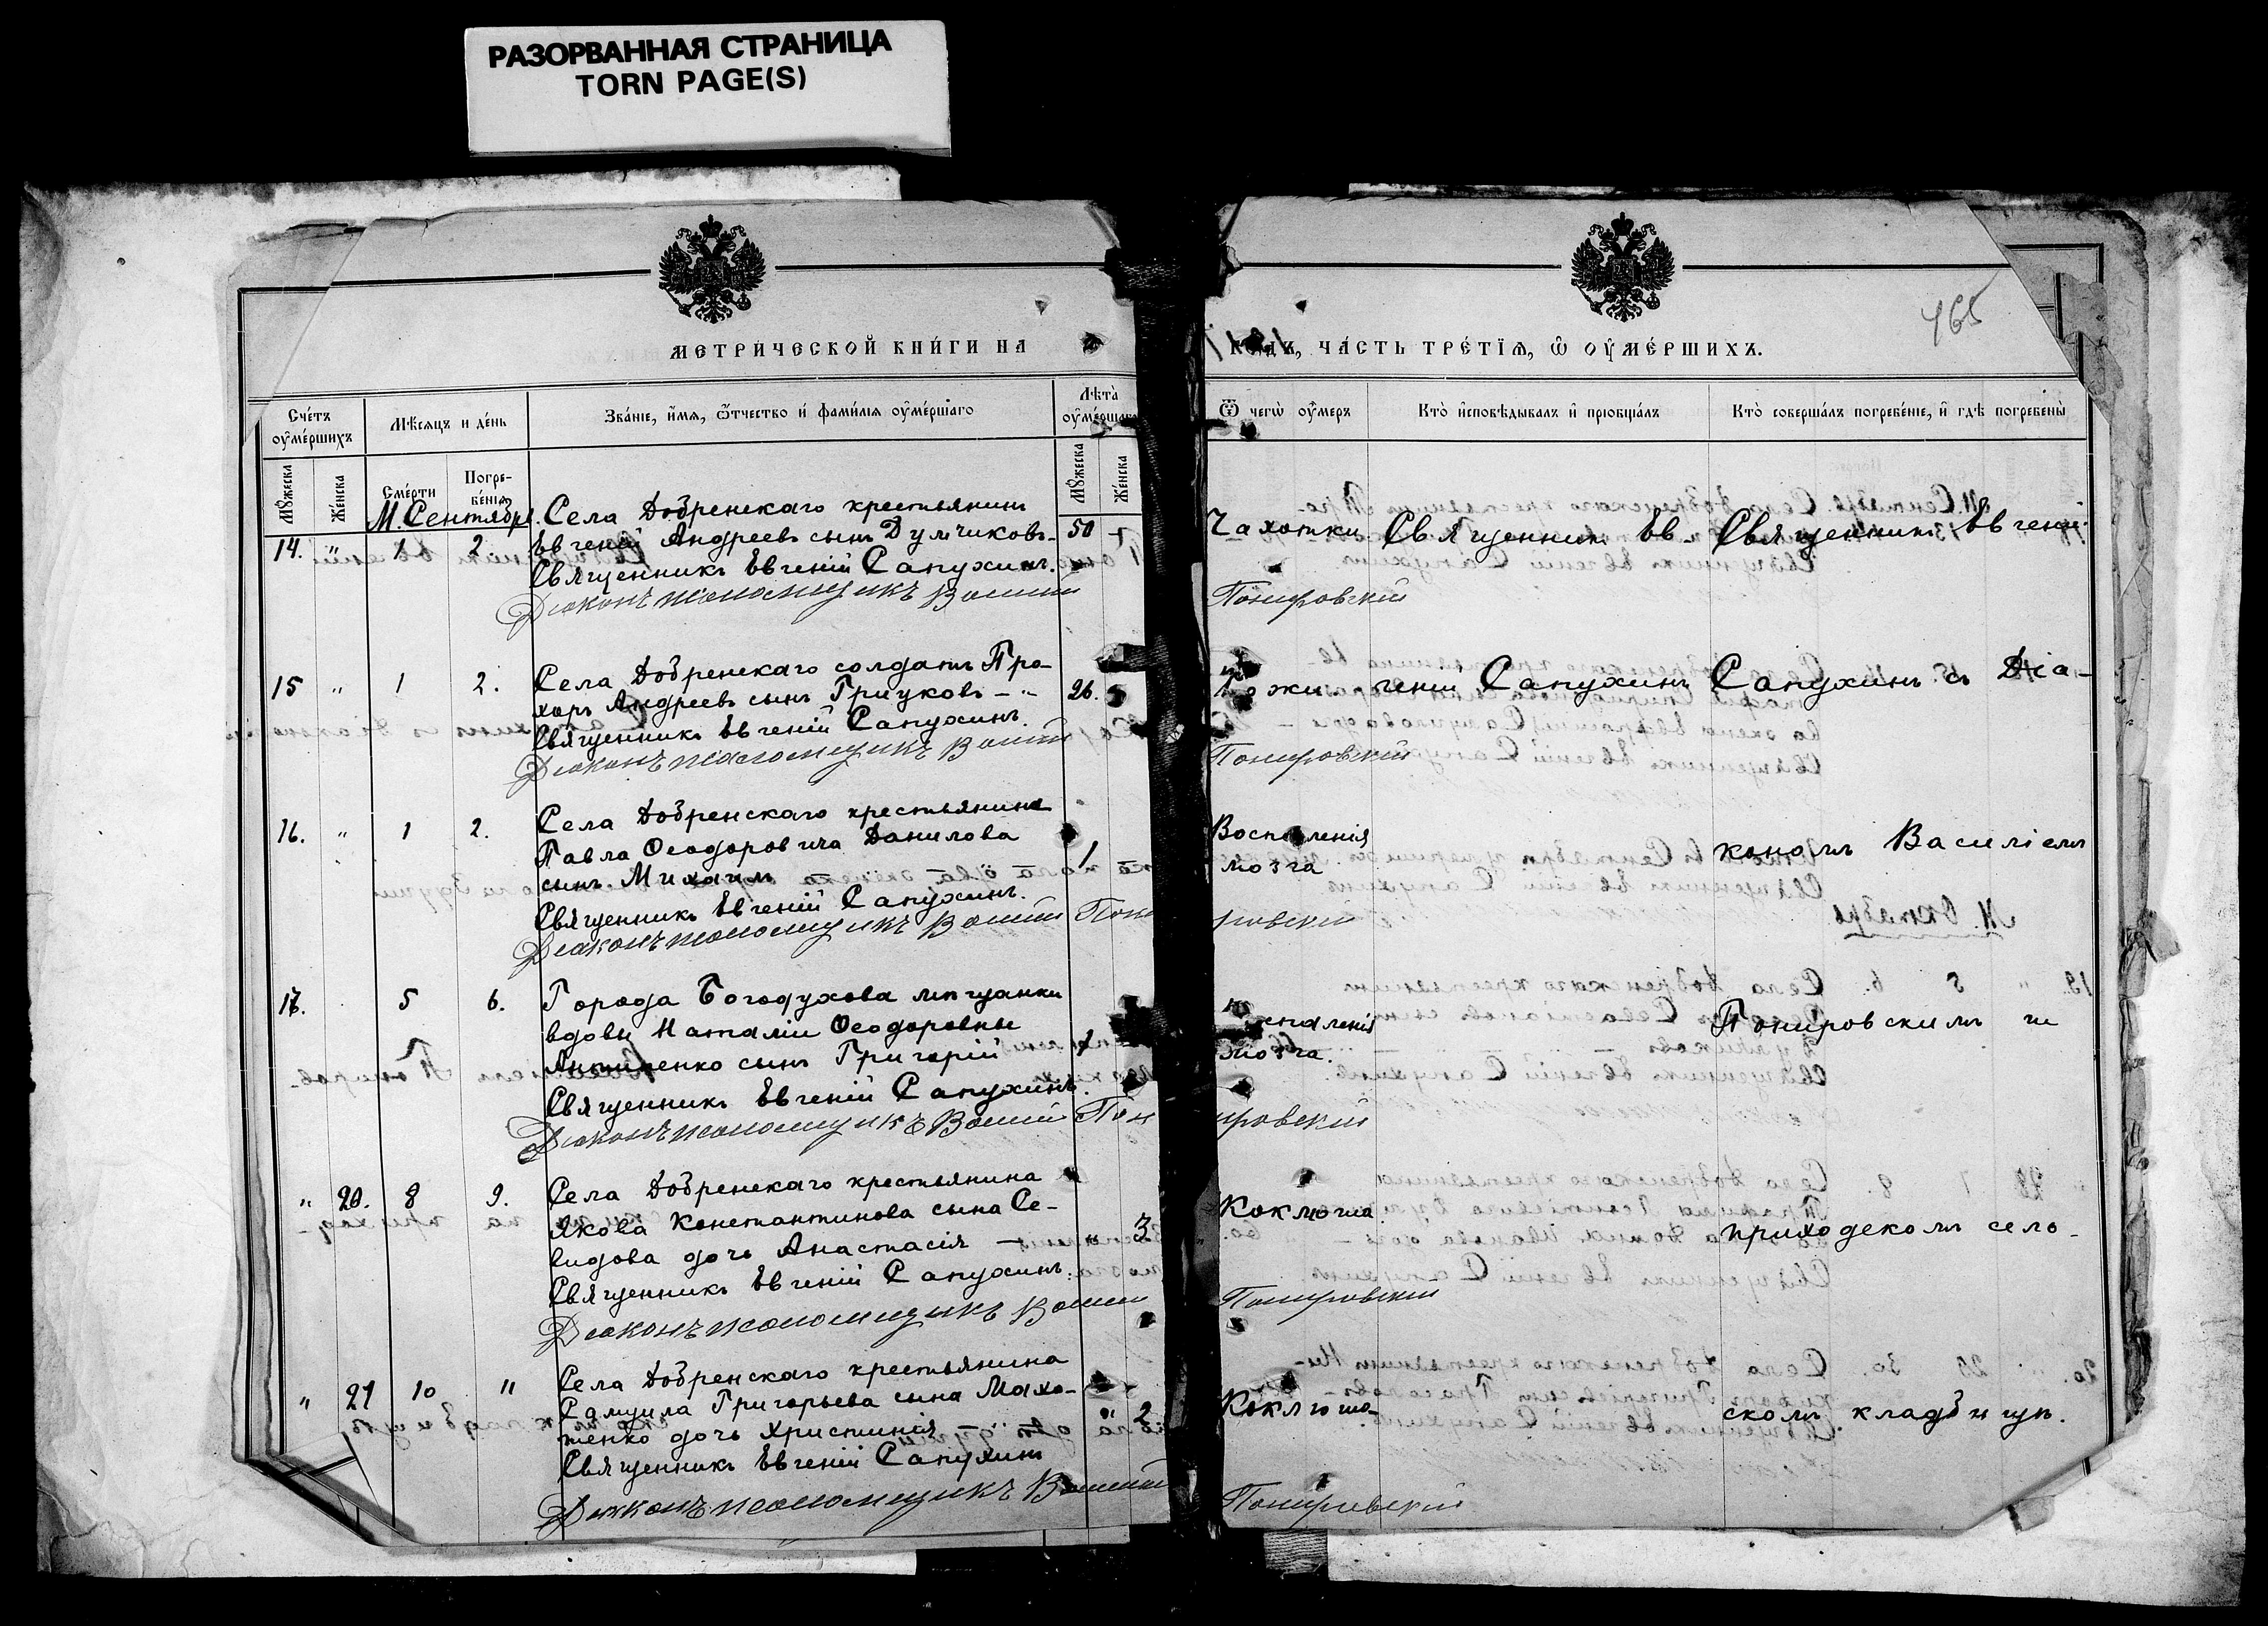 РАЗОРВАННАЯ СТРАНИЦА
TORN PAGE(S)
465
МЕТРИ́ЧЕСКОЙ КНИ́ГИ НА
ГОДЪ, ЧА́СТЬ ТРЕ́ТЇѦ, Ѿ ОУ҆МЕ́РШИХЪ.
Сче́тъ оу҆ме́ршихъ
Мꙋ́жеска
Же́нска
Мѣ́сѧцъ и де́нь
Сме́рти
Погре-
бе́нїѧ
Зва́нїе, и҆́мѧ, ѻ҆́тчество и҆ фами́лїѧ оу҆ме́ршаго
Лѣ́та оу҆ме́ршаго
Мꙋ́жеска
Же́нска
Ѿ чегѡ̀ оу҆́меръ
Кто̀ и҆сповѣ́дывалъ и҆ прїѡбща́лъ
Кто̀ соверша́лъ погребе́нїе, и҆ гдѣ̀ погребены̀
М. Сентябрь.
14. " 1 2
Села Добренскаго крестьянинъ
Евгеній Андреевъ сынъ Думчиковъ-
50
Священникъ Евгеній Сапухинъ.
Діаконъ псаломщикъ Василій
Чахотки
Священник Ев-
Священникъ Евгеній
Понировскій
15 " 1 2.
Села Добренскаго солдатъ Про-
хоръ Андреевъ сынъ Грицковъ - "
26.
Священникъ Евгеній Сапухинъ.
Діаконъ псаломщикъ Василій
геній Сапухинъ
Сапухинъ съ Діа-
Понировскій
16. " 1 2.
Села Добренскаго крестьянина
Павла Ѳеодоровича Данилова
сынъ Михаилъ
1
Священникъ Евгеній Сапухинъ.
Діаконъ псаломщикъ Василій Пони
Воспаленія
мозга
кономъ Василіемъ
ровскій
17. 5 6.
Города Богодухова мѣщанки
вдовы Наталіи Ѳеодоровны
Антипенко сынъ Григорій
Священникъ Евгеній Сапухинъ.
Діаконъ псаломщикъ Василій Пон
Воспаленія
мозга.
Понировскимъ на
ировскій
" 20. 8 9.
Села Добренскаго крестьянина
Якова Константинова сына Се-
видова дочь Анастасія — " 3
Священникъ Евгеній Сапухинъ.
Діаконъ псаломщикъ Василій
Коклюша
приходскомъ село-
Понировскій
" 21 10 11
Села Добренскаго крестьянина
Самуила Григорьева сына Махо-
тенко дочь Христинія " 2
Священникъ Евгеній Сапухинъ
Діаконъ псаломщикъ Василій
Коклюша
скомъ кладбищѣ.
Понировскій